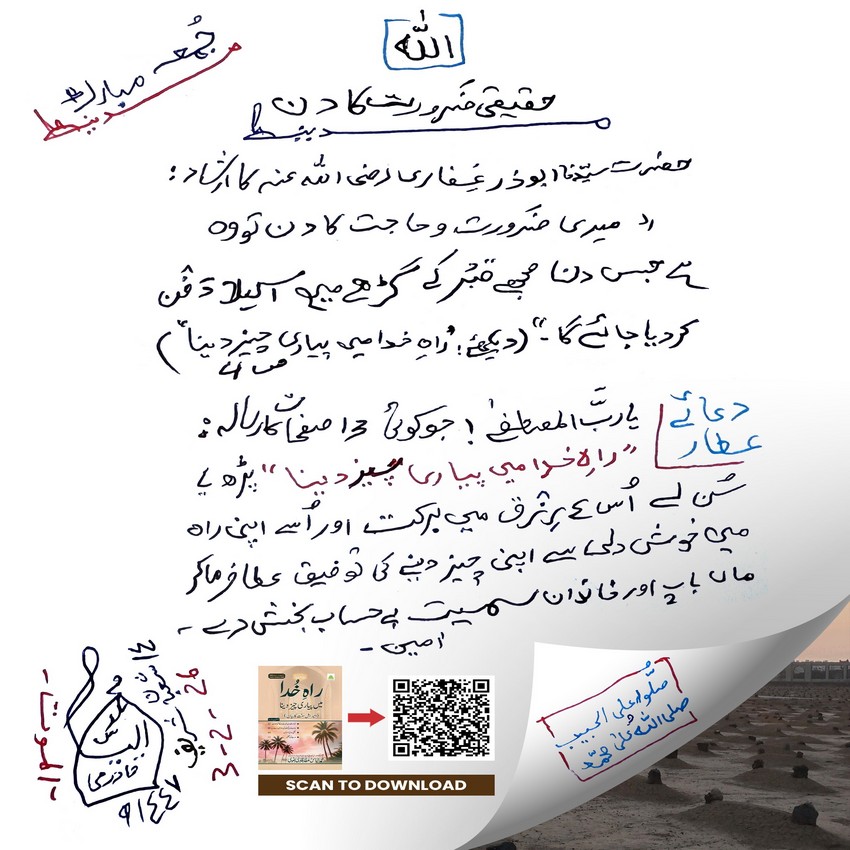 اللہ
جُمعہ مبارک
مدینہ
حقیقی ضَرورت کا دن
مدینہ
حضرت سیّدنا ابوذر غِفاری رضی اللہ عنہ کا ارشاد:
"میری ضَرورت و حاجت کا دن تو وہ
ہے جس دن مجھے قبْر کے گڑھے میں اکیلا دَفْن
کر دیا جائے گا۔" (دیکھئے: "راہِ خدا میں پیاری چیز دینا"
ص 4)
دعائے
عطار
یا ربَّ المصطفےٰ! جو کوئی 13 صفحات کا رسالہ:
"راہِ خدا میں پیاری چیز دینا" پڑھ یا
سُن لے اُس کے رِزْق میں برکت اور اُسے اپنی راہ
میں خوش دلی سے اپنی چیز دینے کی توفیق عطا فرما کر
ماں باپ اور خاندان سمیت بے حساب بخش دے۔
اٰمین۔
راہِ خُدا
میں پیاری چیز دینا
SCAN TO DOWNLOAD
صلُّوا علی الحبیب
صلی اللہُ علیٰ محمّد
محمد الیاس
قادری
۱۴ شعبان شریف
۱۴۴۷ھ
3-2-26
الموت